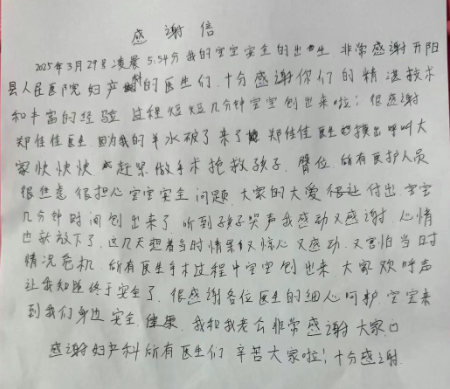 感谢信
2025年3月29号凌晨5:54分我的宝宝安全的出生 非常感谢开阳
县人民医院妇产科的医生们,十分感谢你们的精湛技术
和丰富的经验 过程短短几分钟宝宝刨出来啦!很感谢
郑佳佳医生 因为我的羊水破了来了 郑佳佳医生 摸出呼叫大
家快快快 赶紧做手术抢救孩子.臀位.所有医护人员
很焦急 很担心宝宝安全问题.大家的大爱很让付出.宝宝
几分钟时间刨出来了 听到孩子哭声我感动又感谢.心情
也就放下了.这几天想着当时情景又惊心又感动.又害怕当时
情况危机.所有医生手术过程中宝宝刨出来 大家欢呼声
让我知道终于安全了.很感谢各位医生的细心呵护.宝宝来
到我们身边 安全 健康.我和我老公非常感谢大家
感谢妇产科所有医生们 辛苦大家啦!十分感谢.